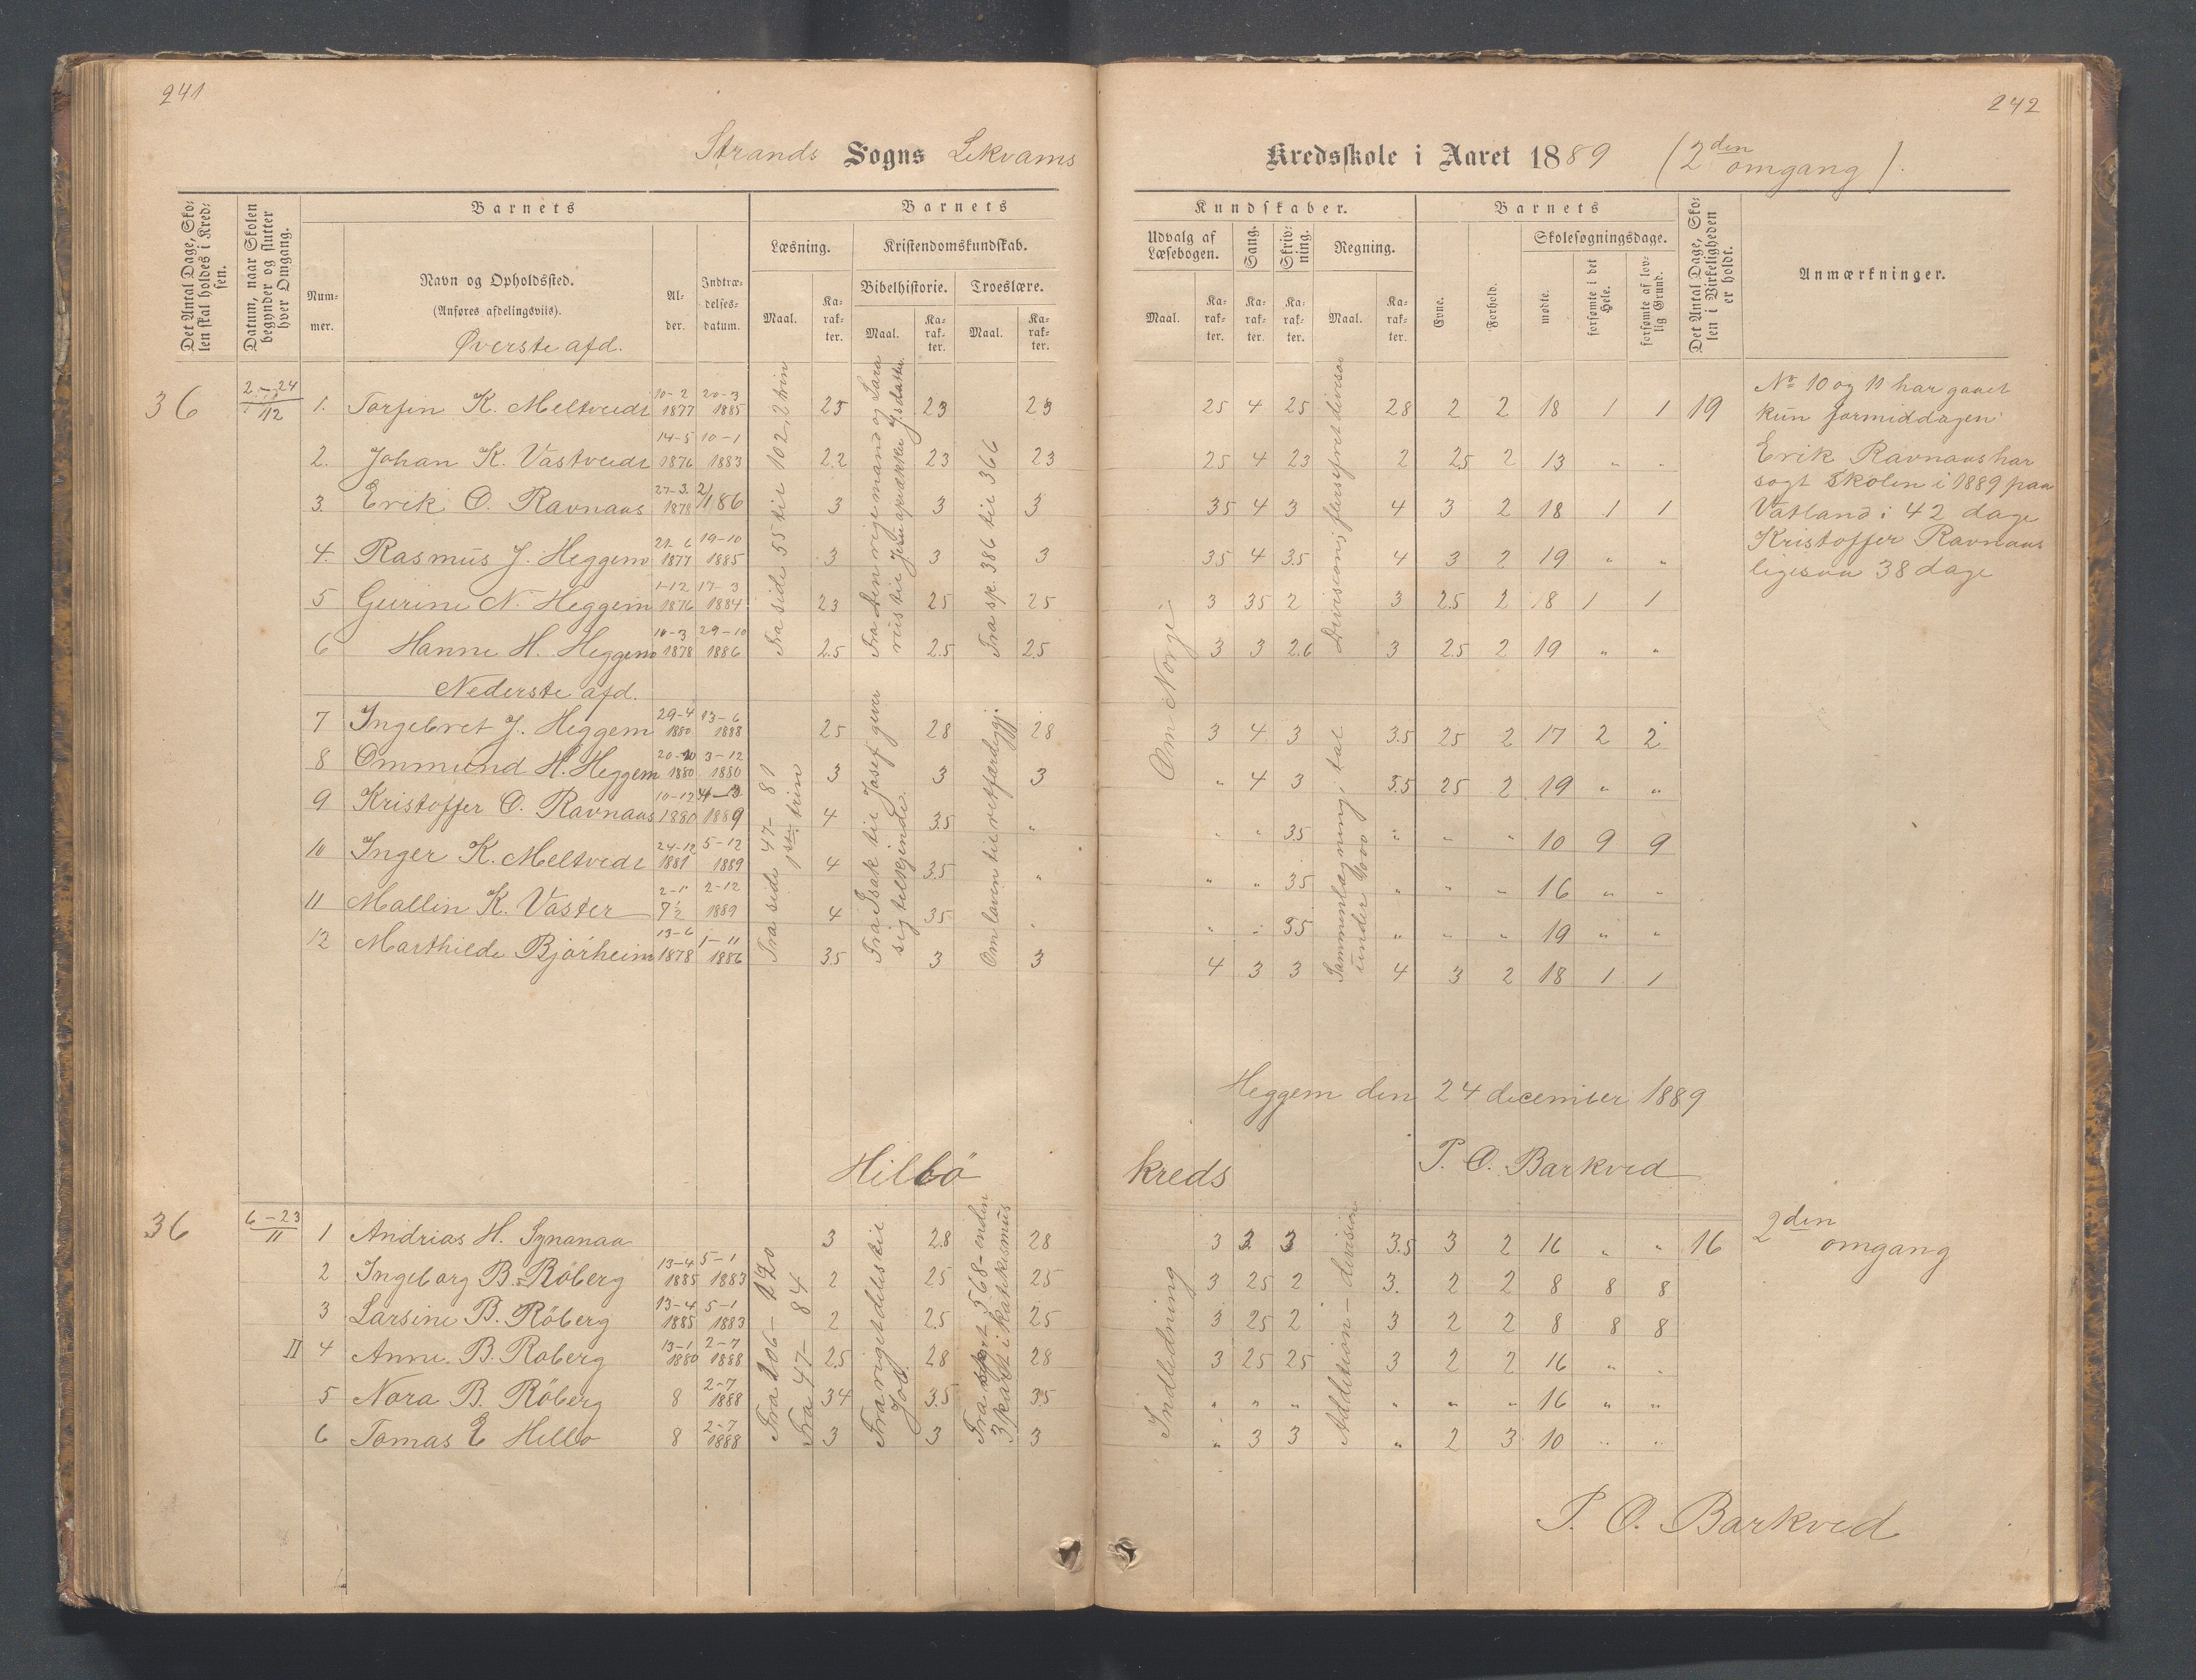 241
Strands Sogns Lekvams
Det Antal Dage, Sko-
len skal holdes i Kred-
sen.
Datum, naar Skolen
begynder og slutter
hver Omgang.
Barnets
Num-
mer.
Navn og Opholdssted.
(Anføres afdelingsviis).
Øverste afd.
Al-
der.
Indtræ-
delses-
datum.
Barnets
Læsning.
Maal.
Ka-
rak-
ter.
Kristendomskundskab.
Bibelhistorie.
Maal.
Ka-
rak-
ter.
Troeslære.
Maal.
Ka-
rak-
ter.
36 2-24/12 1. Torfin K. Meltveidt 10-2 1877 20-3 1885 23 23 23
2. Johan K. Vastveidt 14-5 1876 10-1 1883 2.2 23 23
3. Erik O. Ravnaas 27-3. 1878 2/1 86 3 3 3
4. Rasmus J. Heggem 21-6 1877 19-10 1885 3 3 3
5 Gurine N. Heggem 1-12 1876 17-3 1884 23 25 25
6 Hanne H. Heggem 10-3 1878 29-10 1886 2.5 2.5 25
Fra side 55 til 102, 2 trin
Fra den rige mand og Lasa
rus til Jesu opvækker
Fra sp. 386 til 366
Nederste afd.
7 Ingebret J. Heggem 29-4 1880 13-6 1888 25 28 28
8 Ommund H. Heggem 20-10 1880 3-12 1880 3 3 3
9 Kristoffer O. Ravnaas 10-12 1880 1889 4 3.5 "
10 Inger K. Meltvedt 24-12 1881 5-12 1889 4 3.5 "
11 Mallin K. Vaster 2-1 7½ 2-12 1889 4 35 "
12 Marthilde Bjørheim 13-6 1878 1-11 1886 3.5 3 3
Fra side 47-81
1ste trin
Fra Isak til Josef giver
sig tilkjende.
Om loven til retfærdiggj.
Hillø
36 6-23/11 1 Andrias H. Synanaa 3 2.8 28
2 Ingeborg B. Röberg 13-4 1885 5-1 1883 2 25 25
3 Larsine B. Röberg 13-4 1885 5-1 1883 2 2.5 25
II 4 Anne B. Roberg 13-1 1880 2-7 1888 2.5 28 28
5 Nora B. Röberg 8 2-7 1888 34 3.5 3.5
6 Tomas E Hillo 8 2-7 1888 3 3 3
Fra 206-220
Fra 47-84
Fra rigets deles til
Job.
Fra 568-enden
3 part i katekismus
242
Kredsskole i Aaret 1889 (2den omgang).
Kundskaber.
Udvalg af
Læsebogen.
Maal.
Ka-
rak-
ter.
Sang.
Ka-
rak-
ter.
Skriv-
ning.
Ka-
rak-
ter.
Regning.
Maal.
Ka-
rak-
ter.
Barnets
Evne.
Forhold.
Skolesøgningsdage.
mødte.
forsømte i det
Hele.
forsømte af lov-
lig Grund.
Det Antal Dage, Sko-
len i Virkeligheden
er holdt.
Anmærkninger.
25 4 25 28 2 2 18 1 1 19
25 4 23 2 25 2 13 " "
35 4 3 4 3 2 18 1 1
35 4 3.5 4 3 2 19 " "
3 35 2 3 2.5 2 18 1 1
3 3 2.6 3 2.5 2 19 " "
3 4 3 3.5 25 2 17 2 2
" 4 3 3.5 25 2 19 " "
" " 3.5 " " " 10 9 9
" " 35 " " " 16 " "
" " 35 " " " 19 " "
4 3 3 4 3 2 18 1 1
Om Norge
Division, flersifret divisor
Sammenlægning, tal
under 1000
No 10 og 11 har gaaet
kun formiddagen
Erik Ravnaas har
søgt Skolen i 1889 paa
Vatland i 42 dage
Kristoffer Ravnaas
ligesaa 38 dage
Heggem den 24 december 1889
P. O. Barkved
kreds
3 3 3 3.5 3 2 16 " " 16
3 25 2 3. 2 2 8 8 8
3 25 2 3 2 2 8 8 8
3 25 25 3 2 2 16 " "
" " " " " " 16 " "
" 3 3 " 2 3 10 " "
Indledning
Addition-division
2den
omgang
P. O. Barkved